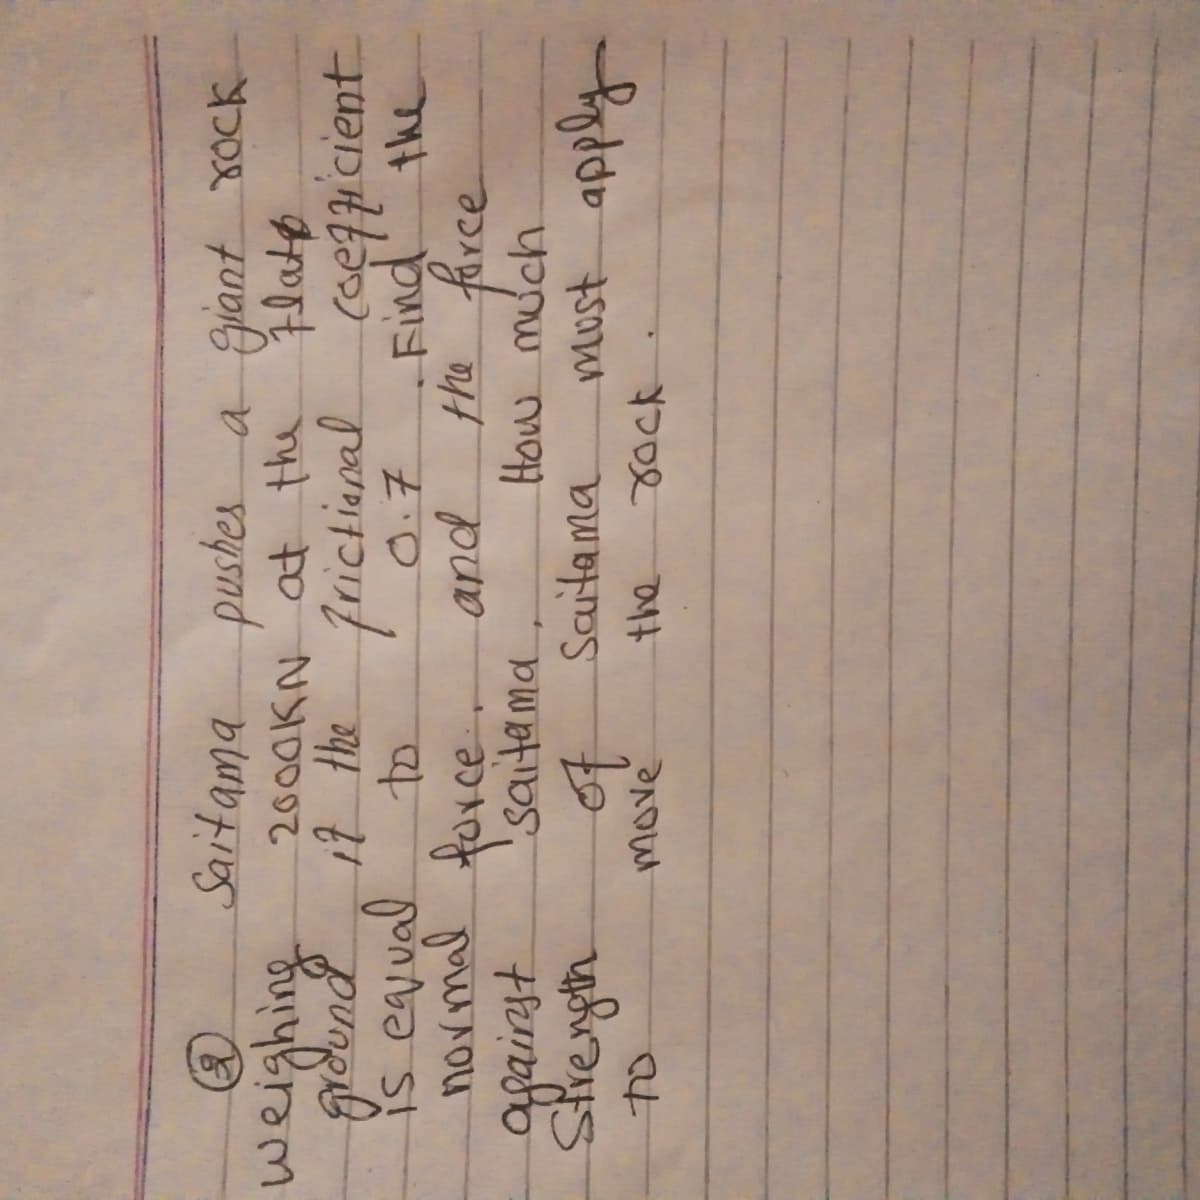 ② Saitama pushes a giant rock
weighing 2000KN at the flat
ground if the frictional coefficient
is equal to 0.7. Find the
normal force. and the force
against saitama, How much
Strength of Saitama must apply
to move the rock.